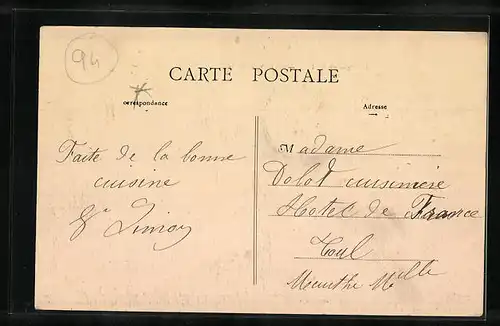 94
CARTE POSTALE
Correspondance
Adresse
Faite de la bonne
cuisine
Madame
Dolot cuisinière
Hotel de France
Toul
Meurthe Mlle